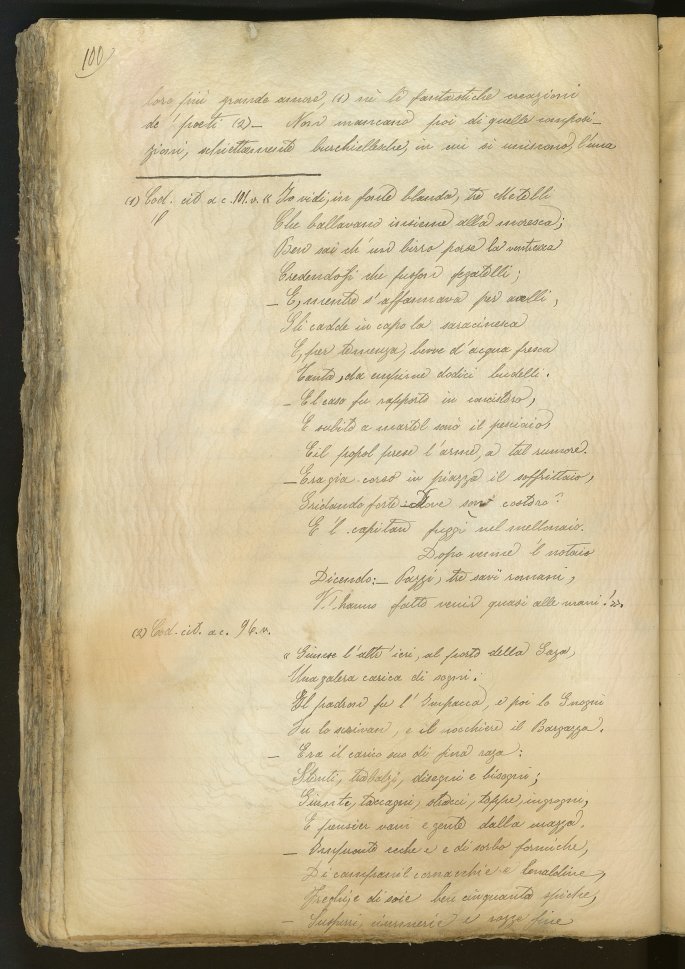 100
loro più grande amore, (1) nè le fantastiche creazioni
de' poeti (2) — Non mancano poi di quelle composi-
zioni, schiettamente burchiellesche, in cui si uniscono, l'una
(1) Cod. cit. a c. 101. v. « Io vidi, in fonte blanda, tre Metelli
Che ballavano insieme alla moresca;
Ben sai ch'un birro porse la ventresca
Credendosi che fusson fegatelli;
— E, mentre s'affannava per avelli,
Gli cadde in capo la saracinesca
E, per temenza, bevve d'acqua fresca
Tanto, da empirne dodici budelli.
— El caso fu rapporto in concistoro,
E subito a martel sonò il pesciaio,
E il popol prese l'arme, a tal rumore.
— Era già corso in piazza il soffrittaio,
Gridando forte: — Dove son costoro?
E 'l capitan fuggì nel mellonaio.
Dopo venne 'l notaio
Dicendo: — Pazzi, tre savi romani,
V'hanno fatto venir quasi alle mani! ».
(2) Cod. cit. a c. 96. v.
« Giunse l'altr'ieri, al porto della
Una galera carica di sogni:
El padron fu l' e poi lo
Fu lo scrivan, e il nocchiere il
— Era il carico suo di
Stenti, trabalzi, disegni e bisogni;
Giunte, taccagni, stracci, toppe, ingrogni,
E pensier vani e gente dalla mazza.
— e di sorbo formiche,
Di campanil cornacchie e
di soie ben cinquanta spiche,
— Suspiri, e rozze fine